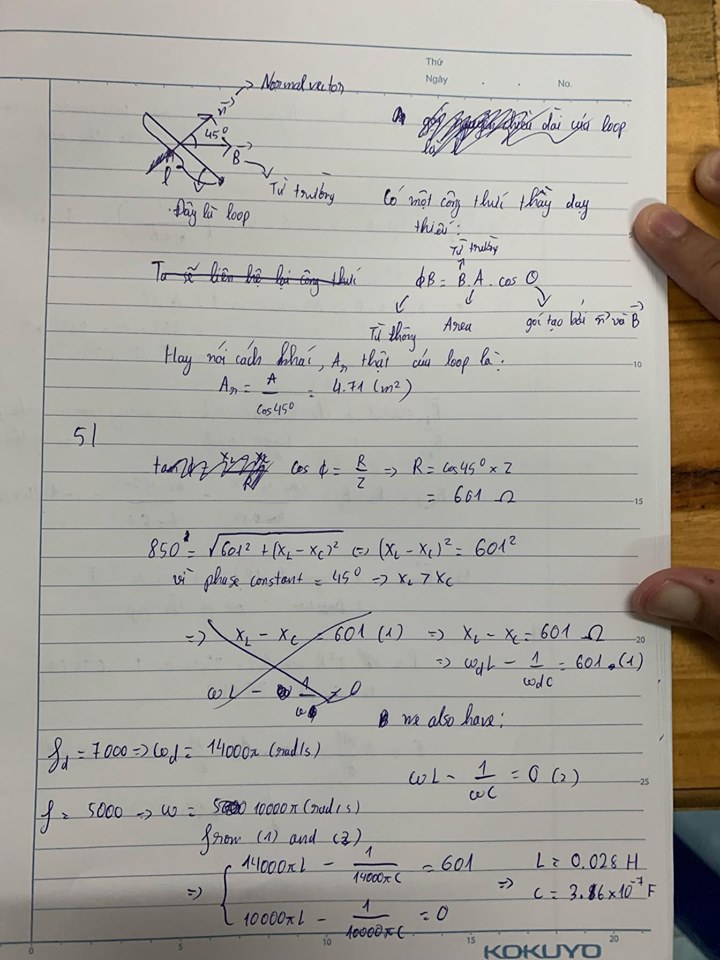 Thứ
Ngày . . No.
Normal vector
n
45°
B
l
Từ trường
Đây là loop
chiều dài của loop
là
Có một công thức thầy dạy
thiếu:
Từ trường
Ta sẽ liên hệ lại công thức
ϕB = B.A. cos θ
Từ thông
Area
góc tạo bởi n và B
10
Hay nói cách khác, An thật của loop là:
An = A / cos45° = 4.71 (m²)
5/
tan ϕ = cos ϕ = R/Z => R = cos45° × Z
= 601 Ω
15
850 = √(601² + (XL - XC)²) <=> (XL - XC)² = 601²
vì phase constant = 45° -> XL > XC
=> XL - XC = 601 (1) => XL - XC = 601 Ω
20
=> ωdL - 1/ωdC = 601 (1)
ωL - 1/ω = 0
we also have:
fd = 7000 => ωd = 14000π (rad/s)
ωL - 1/ωC = 0 (2)
25
f = 5000 -> ω = 10000π (rad/s)
from (1) and (2)
=> { 14000πL - 1/14000πC = 601 => L = 0.028 H
10000πL - 1/10000πC = 0 C = 3.86×10⁻⁷ F
0 5 10 15 20
KOKUYO